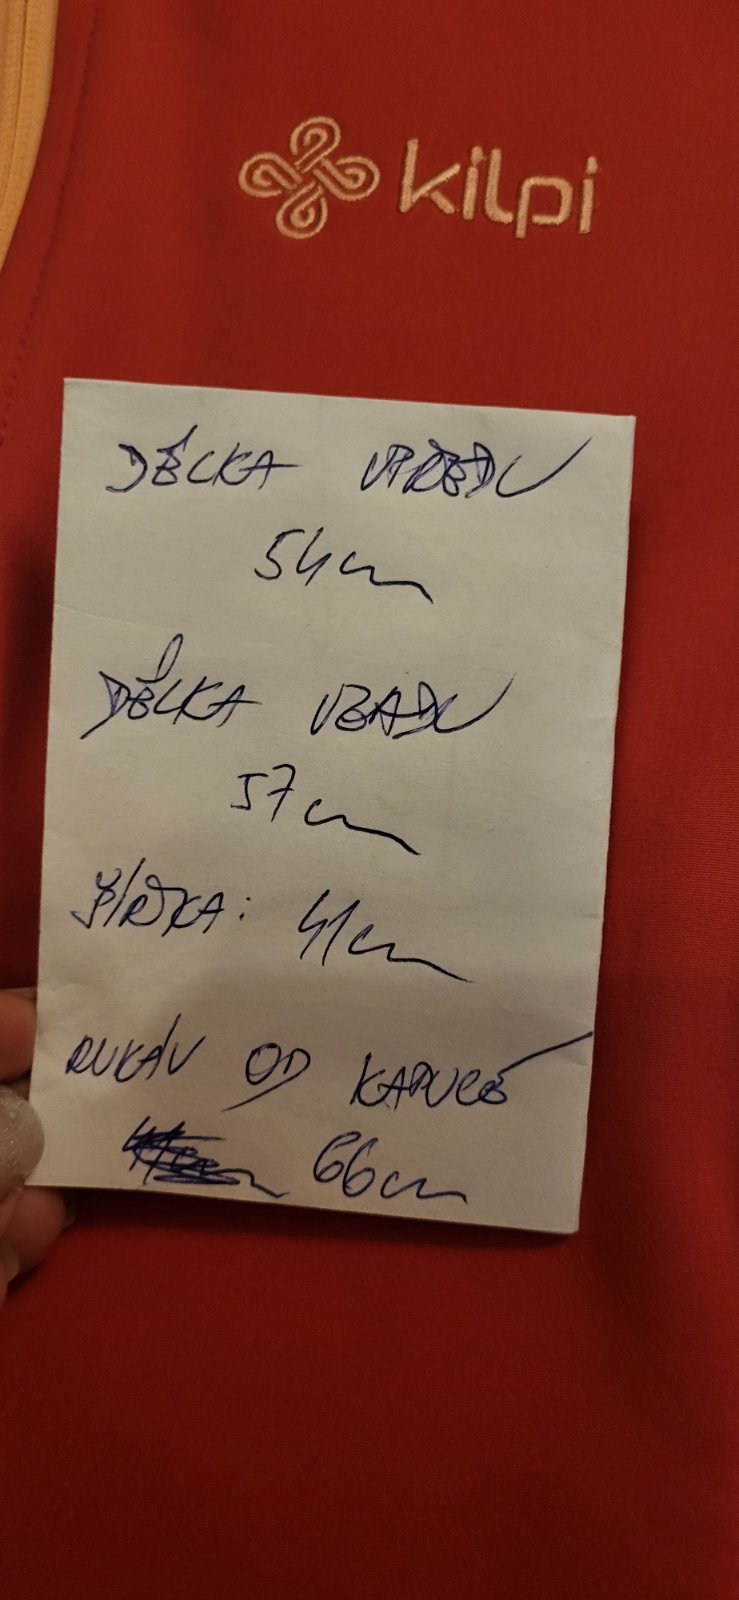 kilpi
DÉLKA VPŘEDU
54cm
DÉLKA VZADU
57cm
ŠÍŘKA: 41cm
RUKÁV OD KAPUCE
66cm